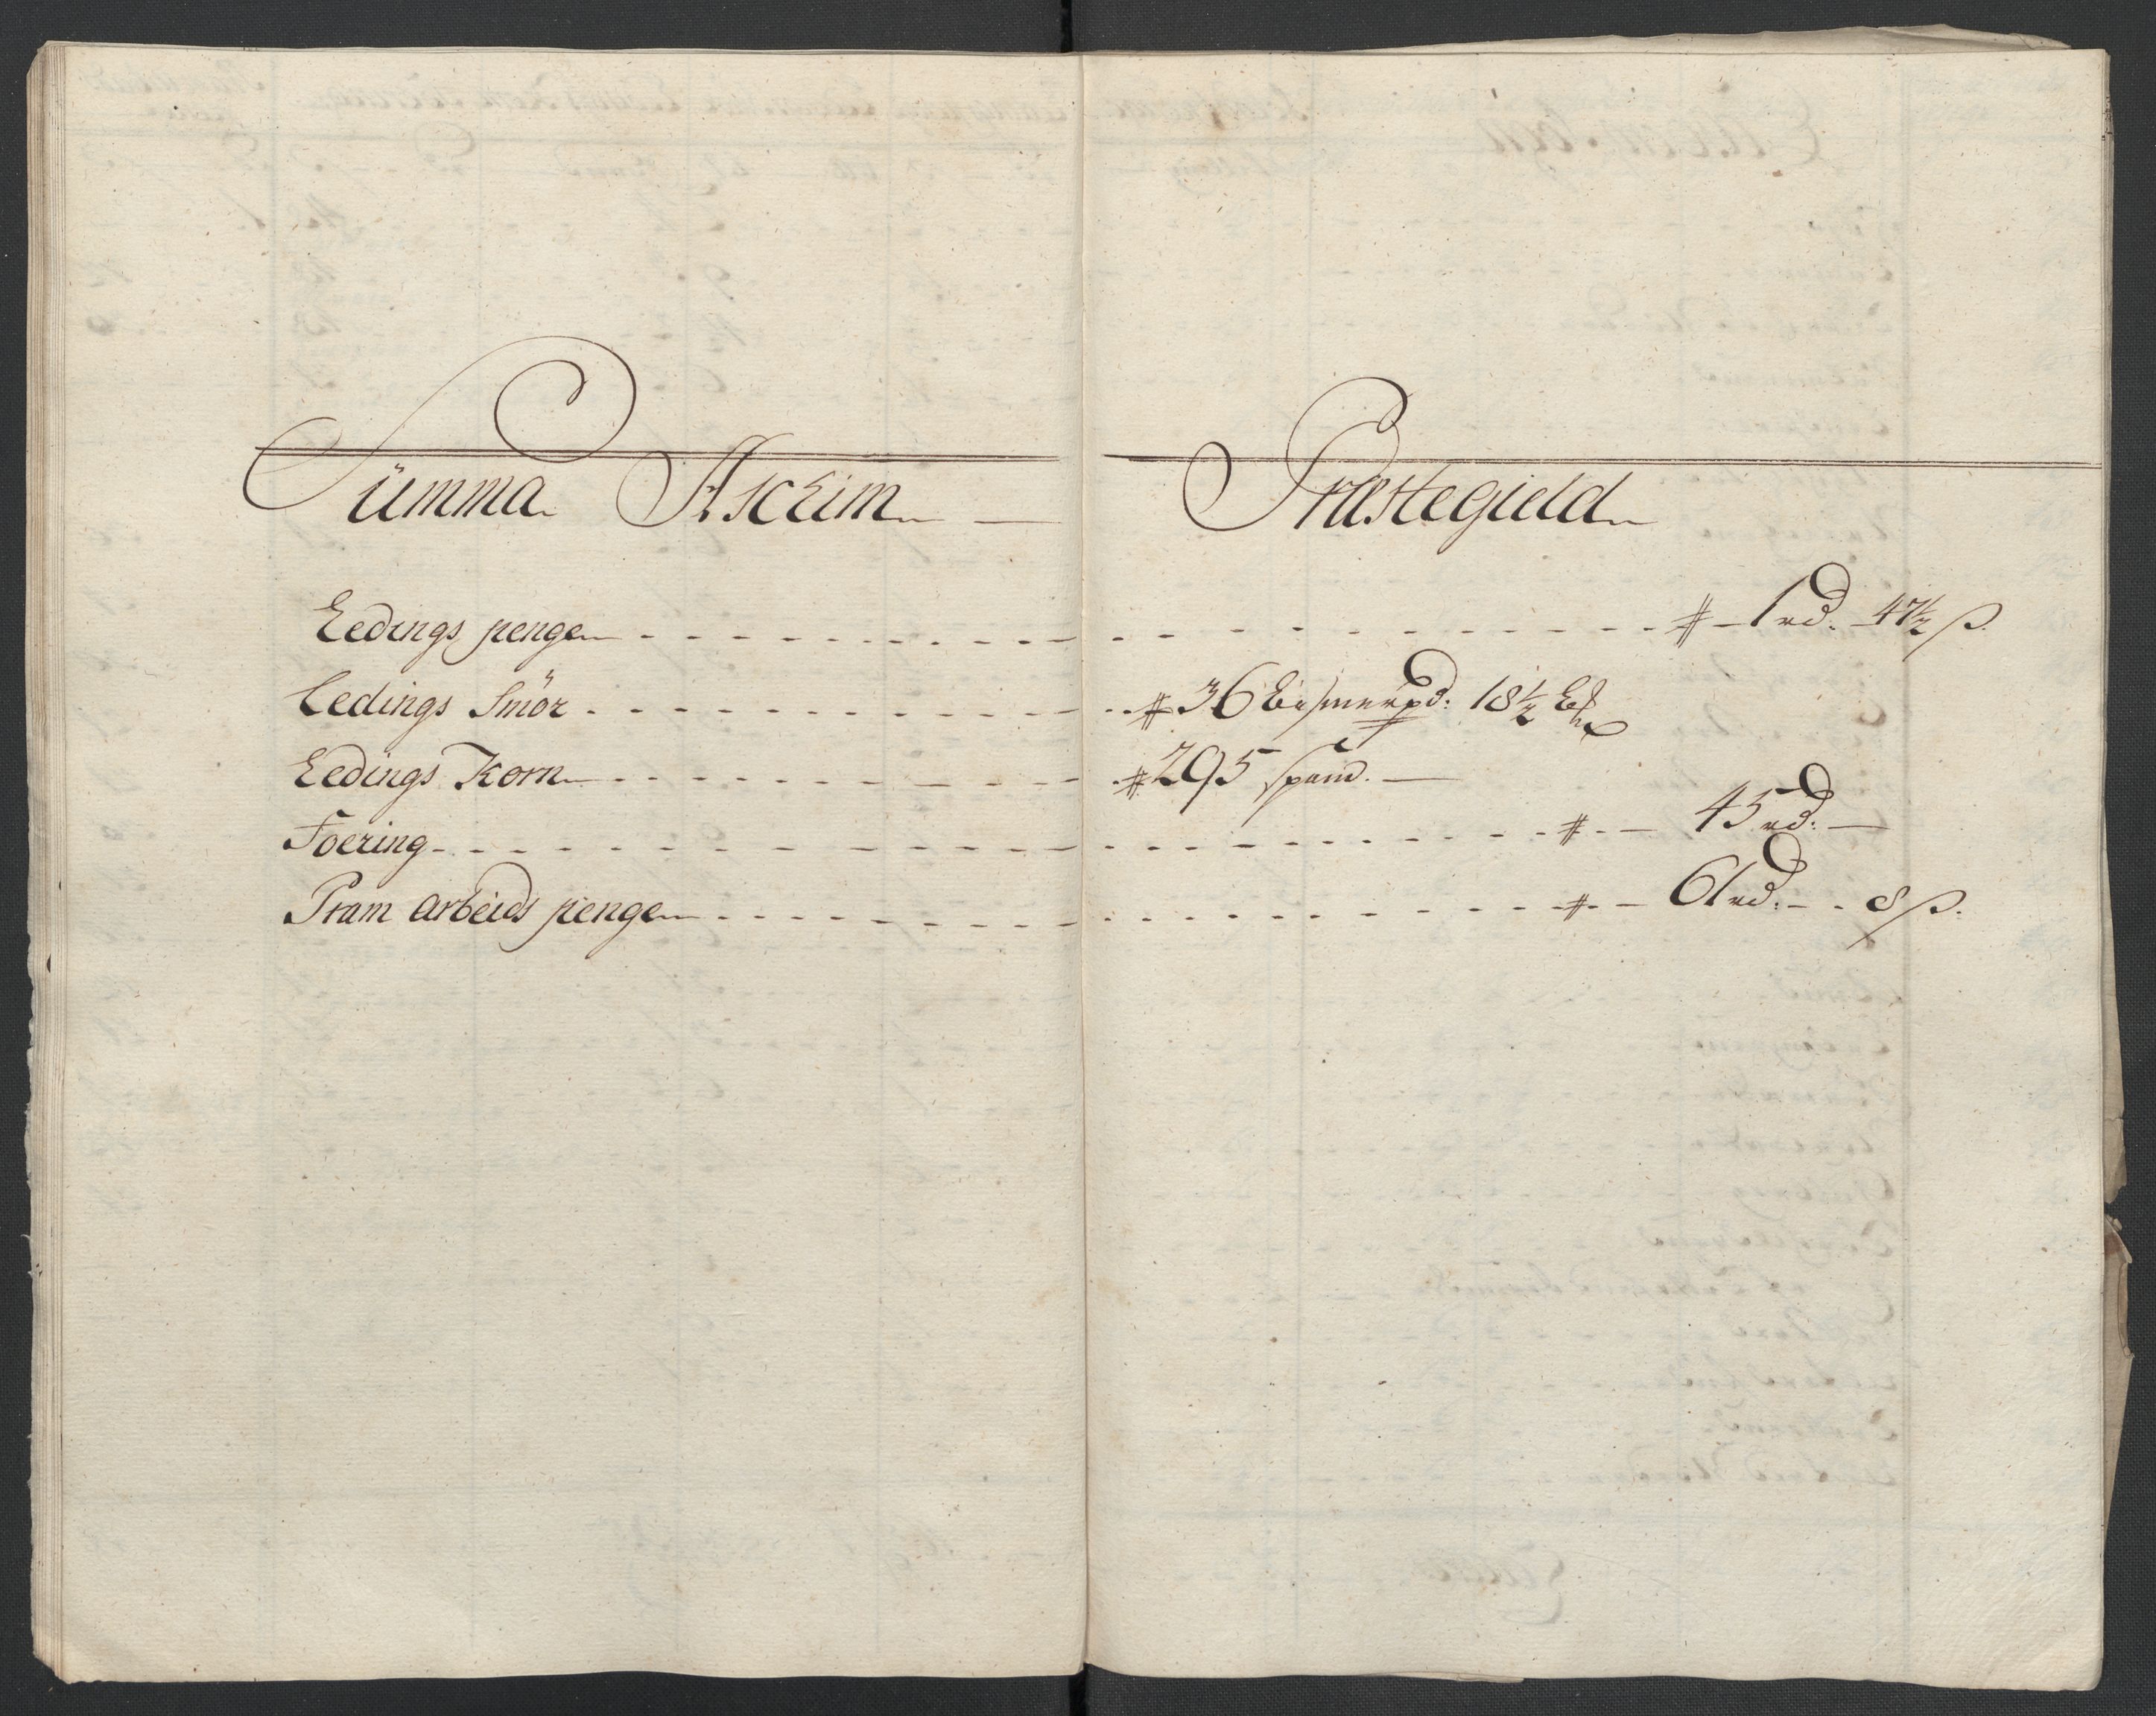 Summa Ascheim — Præstegield
Ledings penge - - - # - 1 rd. 47½ s.
Ledings Smör - - - # 36 bismerpd: 18½ 
Ledings Korn - - - # 295 spand. —
Foering - - - # - 45 rd: —
Pram arbeids penge - - - # - 61 rd: - - 8 s.